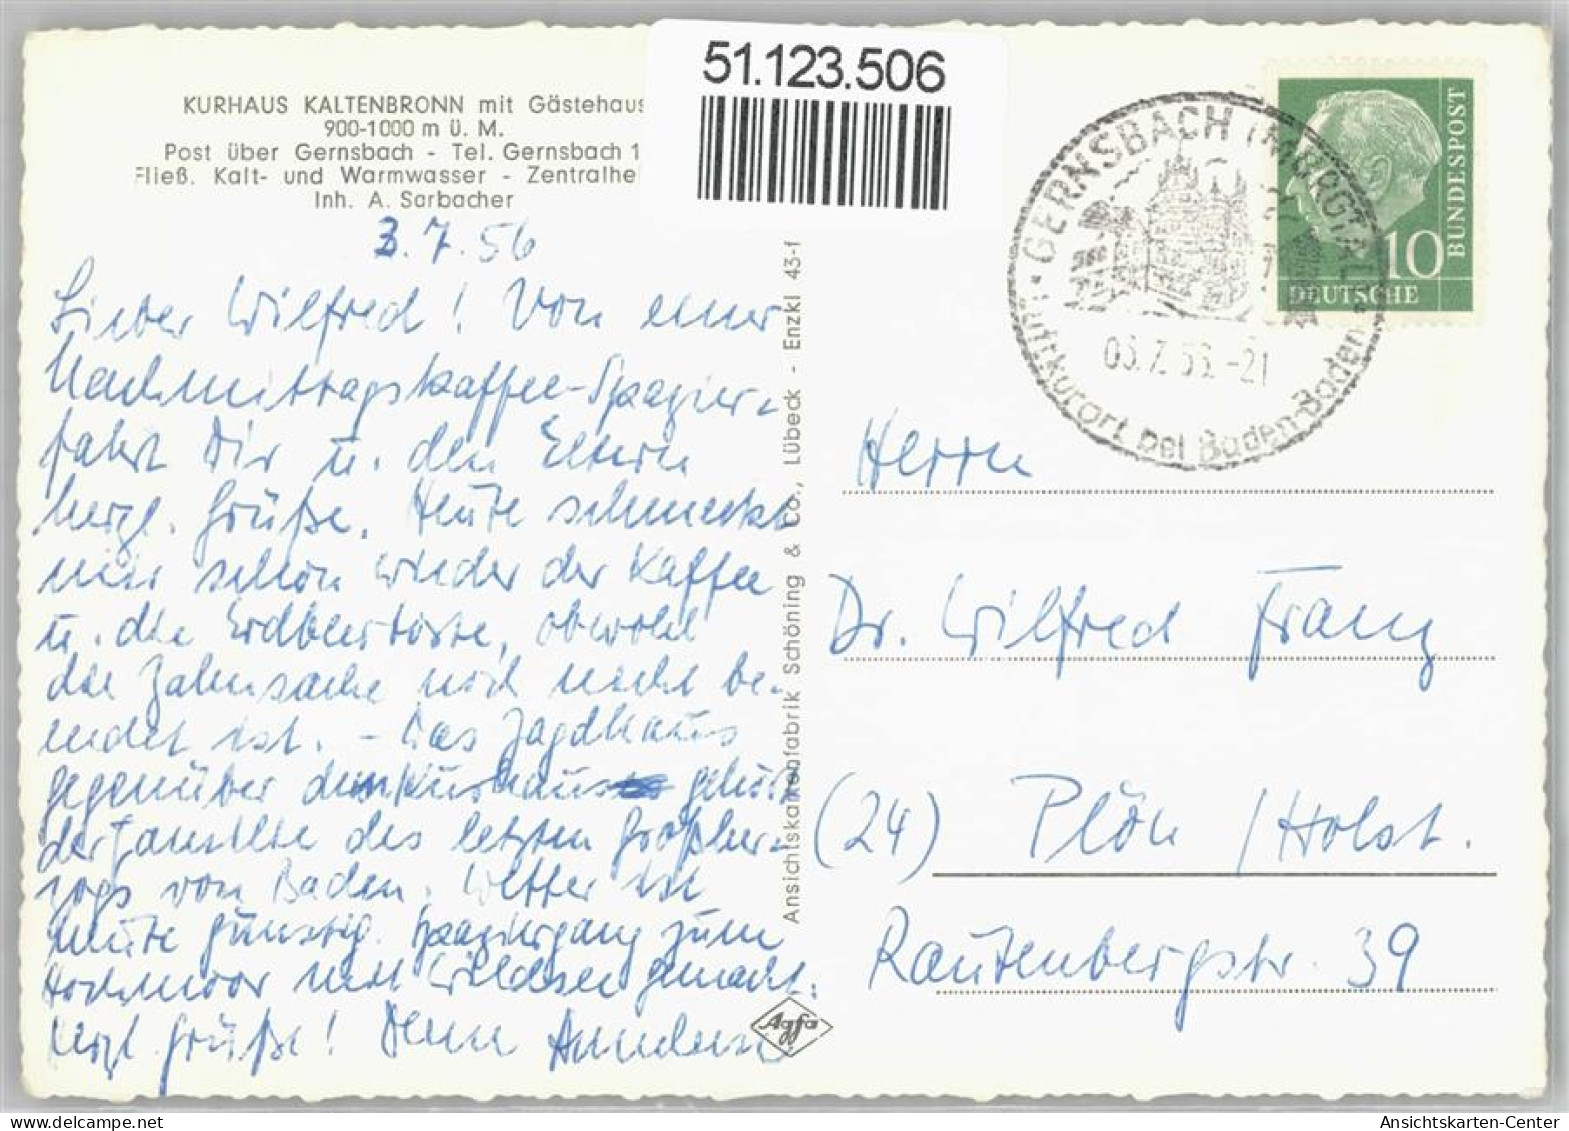 51.123.506
KURHAUS KALTENBRONN mit Gästehaus
900-1000 m ü. M.
Post über Gernsbach - Tel. Gernsbach 1
Fließ. Kalt- und Warmwasser - Zentralhe
Inh. A. Sarbacher
3.7.56
Lieber Wilfred! Von einer
Nachmittagskaffee-Spazier-
fahrt Dir u. den Eltern
herzl. Grüße. Heute schmeckt
mir schon wieder der Kaffee
u. die Erdbeertorte, obwohl
die Zahnsache noch nicht be-
endet ist. - Das Jagdhaus
gegenüber dem Kurhaus gehört
der Familie des letzten Großher-
zogs von Baden. Wetter ist
heute günstig. Spaziergang zum
Hochmoor mit Wildsee gemacht.
Herzl. Grüße! Dein
Ansichtskartenfabrik Schöning & Co., Lübeck - Enzkl 43-f
Agfa
GERNSBACH (MURGTAL)
03.7.56.-21
Luftkurort bei Baden-Baden
DEUTSCHE
BUNDESPOST
10
Herrn
Dr. Wilfred Franz
(24) Plön /Holst.
Rautenbergstr. 39
www.delcampe.net
Ansichtskarten-Center